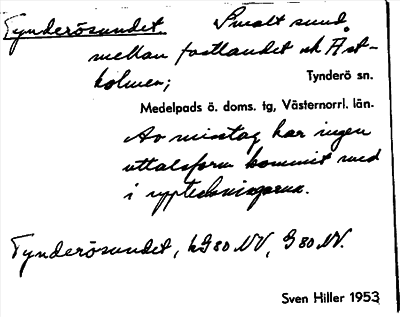 Tynderösundet. Smalt sund
mellan fastlandet och Åst-
holmen; Tynderö sn.
Medelpads ö. doms. tg, Västernorrl. län.
Av misstag har ingen
uttalsform kommit med
i uppteckningarna.
Tynderösundet, G 80 NV, G 80 NV.
Sven Hiller 1953